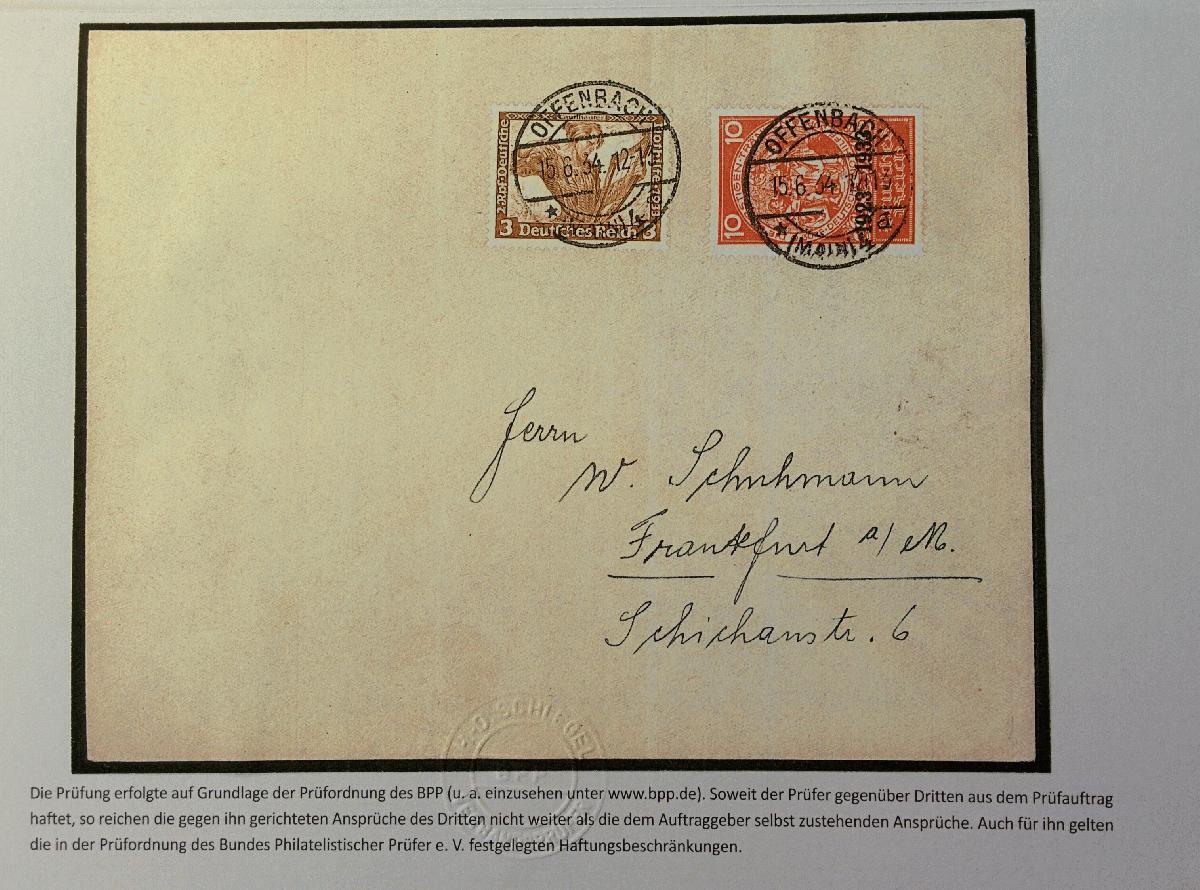 OFFENBACH
15.6.34.12-1
Deutsche
Tannhäuser
3 Deutsches Reich 3
OFFENBACH
15.6.34.
(MAIN) 1
a
10
10
1923-1933
Deutsches
Reich
Herrn
W. Schuhmann
Frankfurt a/M.
Schichaustr. 6
SCHLEGEL
BPP
Die Prüfung erfolgte auf Grundlage der Prüfordnung des BPP (u. a. einzusehen unter www.bpp.de). Soweit der Prüfer gegenüber Dritten aus dem Prüfauftrag
haftet, so reichen die gegen ihn gerichteten Ansprüche des Dritten nicht weiter als die dem Auftraggeber selbst zustehenden Ansprüche. Auch für ihn gelten
die in der Prüfordnung des Bundes Philatelistischer Prüfer e. V. festgelegten Haftungsbeschränkungen.